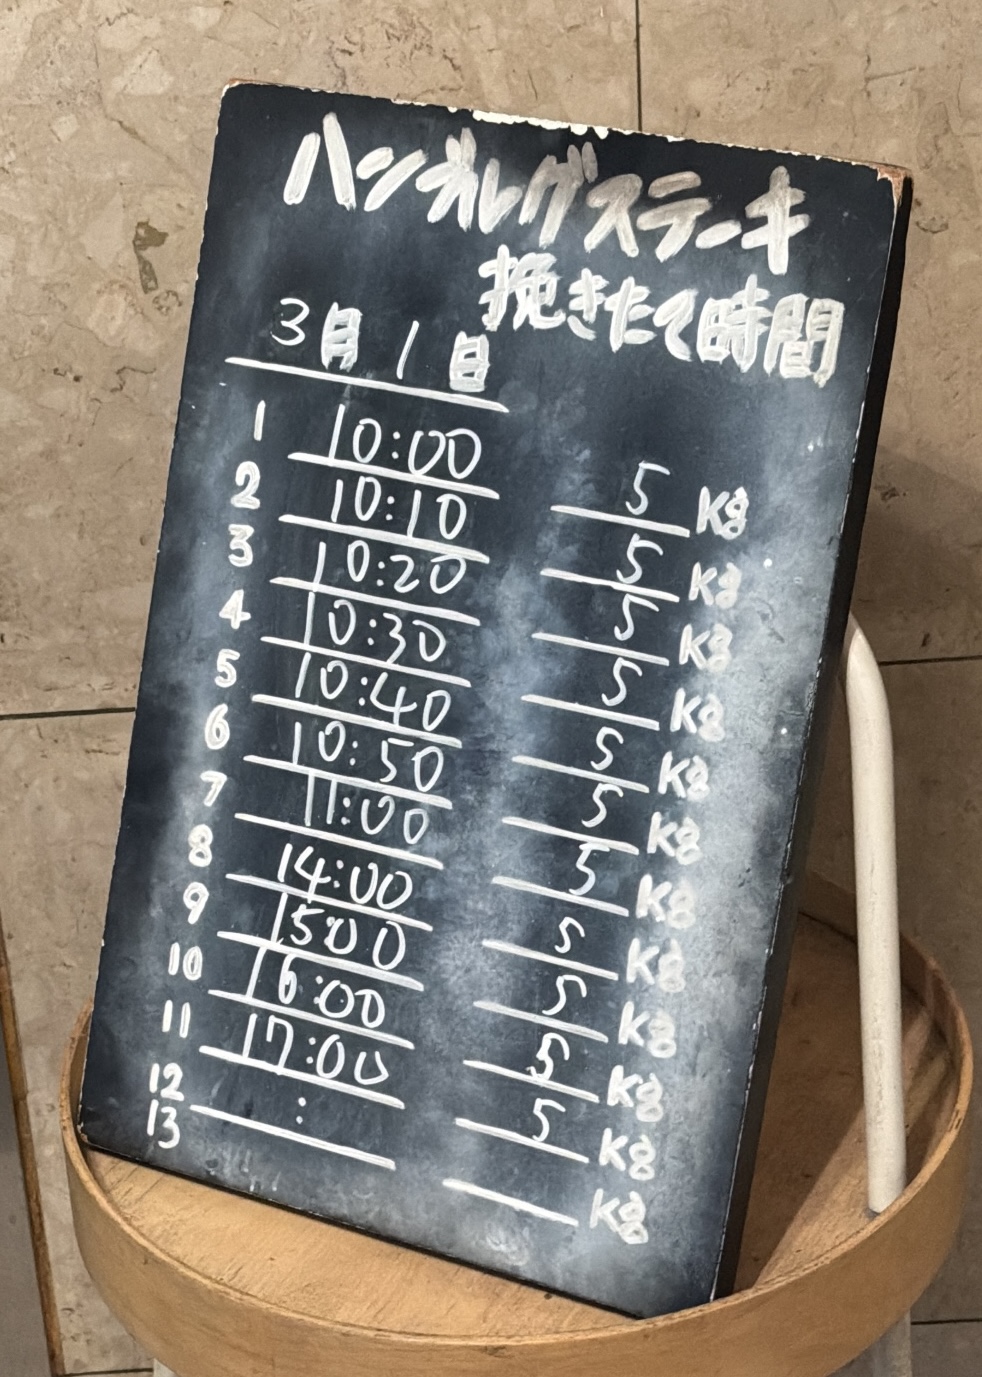 ハンボルグステーキ
挽きたて時間
3月1日
1 10:00 5 Kg
2 10:10 5 Kg
3 10:20 5 Kg
4 10:30 5 Kg
5 10:40 5 Kg
6 10:50 5 Kg
7 11:00 5 Kg
8 14:00 5 Kg
9 15:00 5 Kg
10 16:00 5 Kg
11 17:00 5 Kg
12 : Kg
13